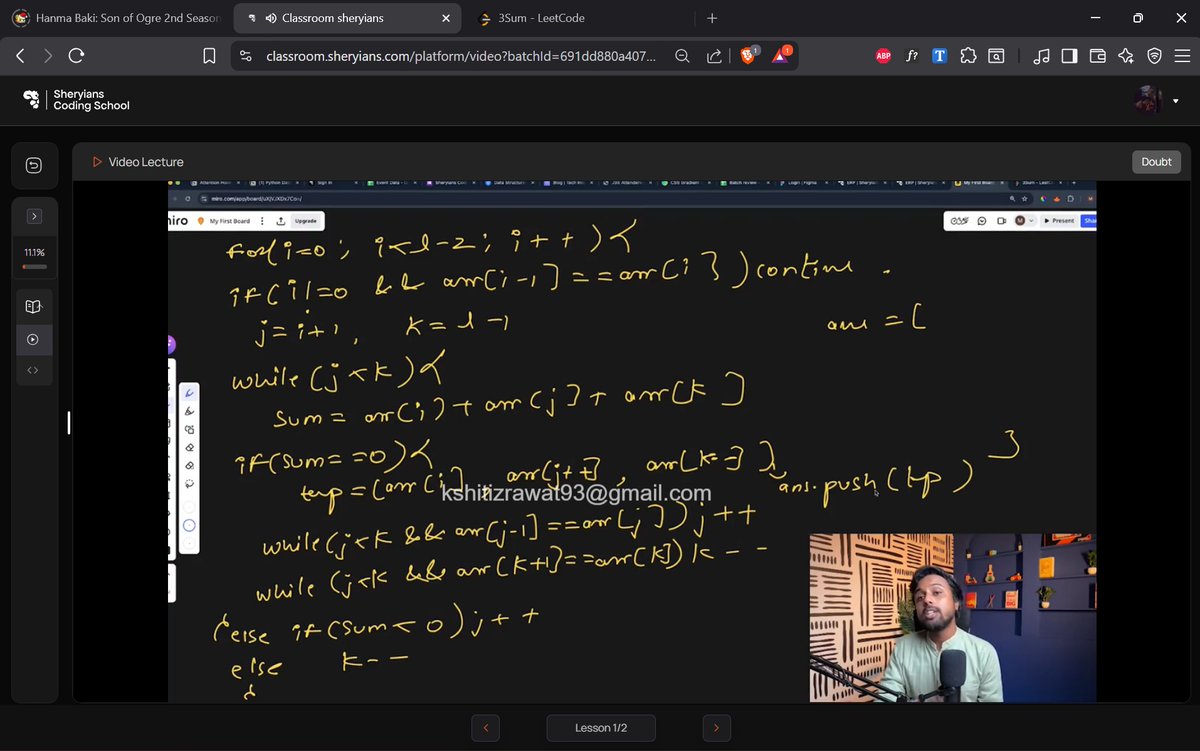 Hanma Baki: Son of Ogre 2nd Season
Classroom sheryians
3Sum - LeetCode
classroom.sheryians.com/platform/video?batchId=691dd880a407...
Sheryians
Coding School
Video Lecture
Doubt
11.1%
miro.com/app/board/uXjVJXDx7Co=/
miro My First Board Upgrade
Present
for(i=0; i<l-2; i++){
if(i!=0 && arr[i-1]==arr[i]) continue
j=i+1, k=l-1
ans=[
while(j<k){
sum=arr[i]+arr[j]+arr[k]
if(sum==0){
temp=[arr[i], arr[j++], arr[k--]], ans.push(tp)
]
kshitizrawat93@gmail.com
while(j<k && arr[j-1]==arr[j])j++
while(j<k && arr[k+1]==arr[k])k--
}else if(sum<0)j++
else k--
Lesson 1/2